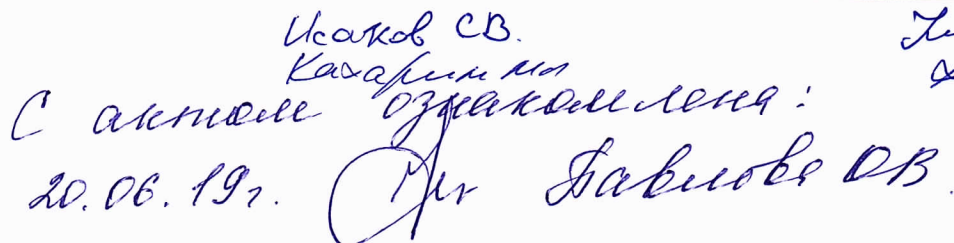 Исаков СВ.
С актом ознакомлена:
20.06.19г. Павлова ОВ